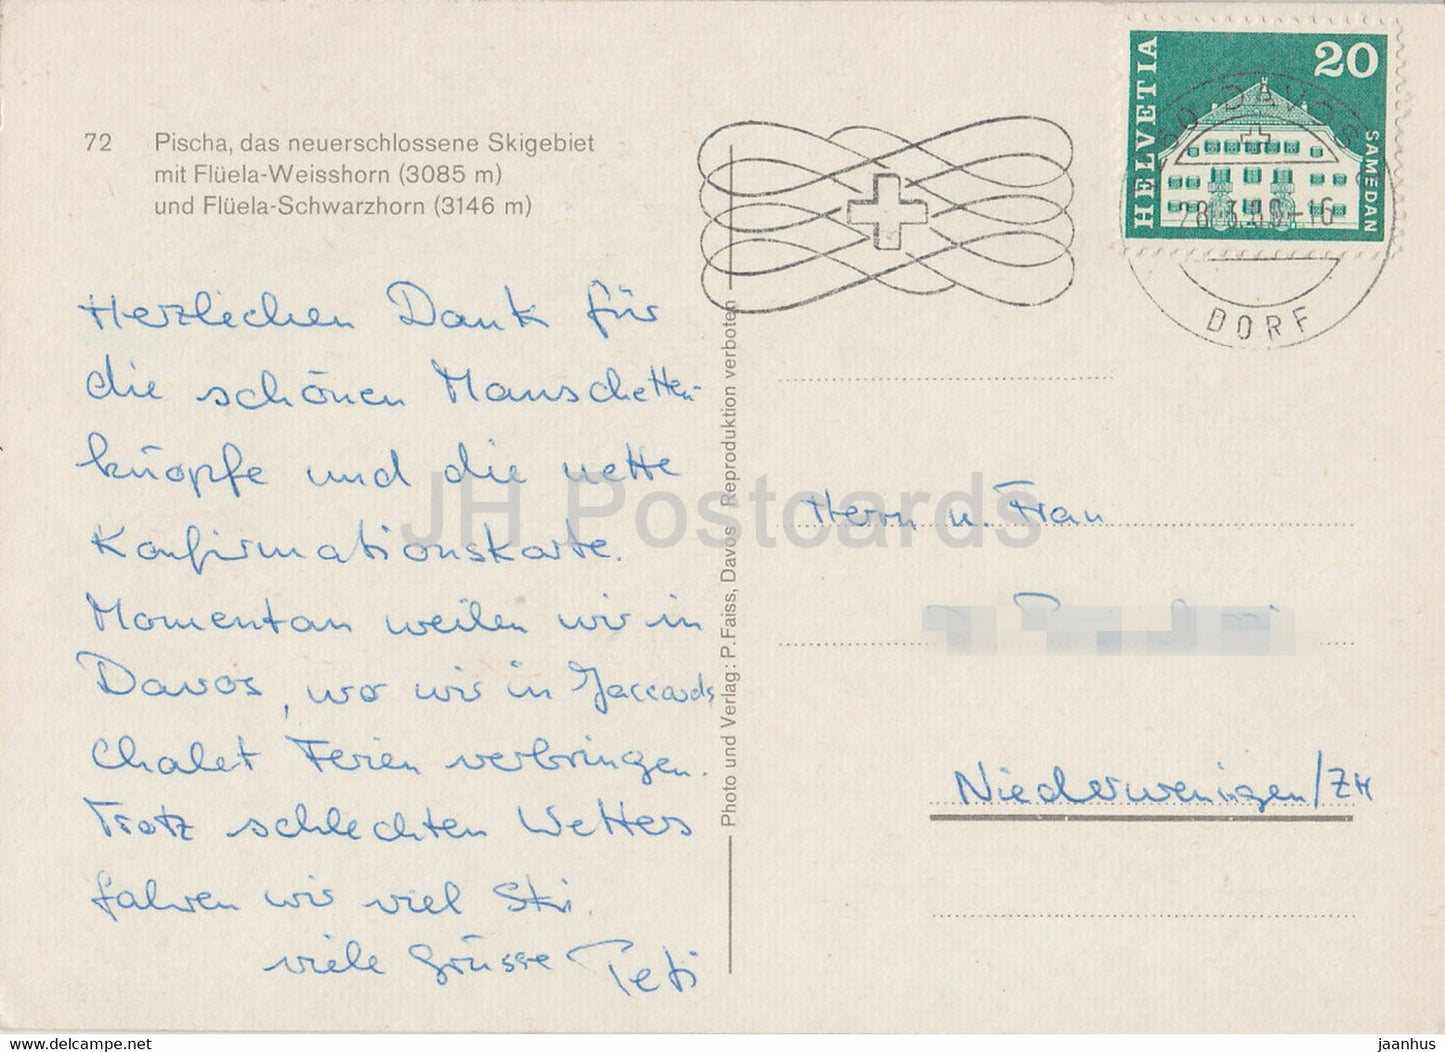 72 Pischa, das neuerschlossene Skigebiet
mit Flüela-Weisshorn (3085 m)
und Flüela-Schwarzhorn (3146 m)
Herzlichen Dank für
die schönen Manschetten-
knöpfe und die nette
Konfirmationskarte.
Momentan weilen wir in
Davos, wo wir in Jaccards
Chalet Ferien verbringen.
Trotz schlechten Wetters
fahren wir viel Ski.
viele Grüsse Peti
Photo und Verlag: P. Faiss, Davos Reproduktion verboten
HELVETIA
20
SAMEDAN
DAVOS
DORF
Herrn u. Frau
Niederweningen/ZH
JH Postcards
www.delcampe.net
jaanhus